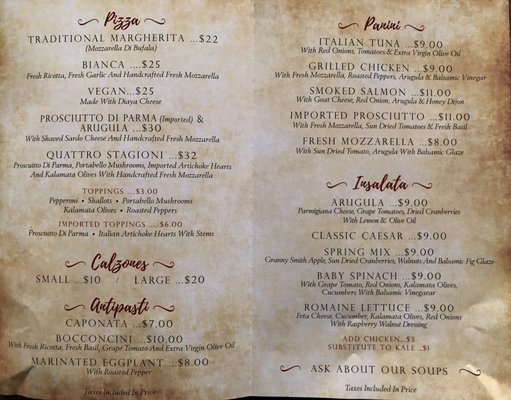 Pizza
Traditional Margherita ...$22
(Mozzarella Di Bufala)
Bianca ....$25
Fresh Ricotta, Fresh Garlic And Handcrafted Fresh Mozzarella
Vegan...$25
Made With Diaya Cheese
Prosciutto Di Parma (Imported) &
Arugula ...$30
With Shaved Sardo Cheese And Handcrafted Fresh Mozzarella
Quattro Stagioni ...$32
Proscuitto Di Parma, Portabello Mushrooms, Imported Artichoke Hearts
And Kalamata Olives With Handcrafted Fresh Mozzarella
Toppings ....$3.00
Pepperoni • Shallots • Portabello Mushrooms
Kalamata Olives • Roasted Peppers
Imported Toppings ....$6.00
Prosciutto Di Parma • Italian Artichoke Hearts With Stems
Calzones
Small ...$10 / Large ...$20
Antipasti
Caponata ...$7.00
Bocconcini ...$10.00
With Fresh Ricotta, Fresh Basil, Grape Tomato And Extra Virgin Olive Oil
Marinated Eggplant ...$8.00
With Roasted Pepper
Taxes Included In Price
Panini
Italian Tuna ...$9.00
With Red Onions, Tomatoes & Extra Virgin Olive Oil
Grilled Chicken ...$9.00
With Fresh Mozzarella, Roasted Peppers, Arugula & Balsamic Vinegar
Smoked Salmon ...$11.00
With Goat Cheese, Red Onion, Arugula & Honey Dijon
Imported Prosciutto ...$11.00
With Fresh Mozzarella, Sun Dried Tomatoes & Fresh Basil
Fresh Mozzarella ...$8.00
With Sun Dried Tomato, Arugula With Balsamic Glaze
Insalata
Arugula ...$9.00
Parmigiana Cheese, Grape Tomatoes, Dried Cranberries
With Lemon & Olive Oil
Classic Caesar ...$9.00
Spring Mix ...$9.00
Granny Smith Apple, Sun Dried Cranberries, Walnuts And Balsamic Fig Glaze
Baby Spinach ...$9.00
With Grape Tomato, Red Onions, Kalamata Olives,
Cucumbers With Balsamic Vinegarar
Romaine Lettuce ...$9.00
Feta Cheese, Cucumber, Kalamata Olives, Red Onions
With Raspberry Walnut Dressing
Add Chicken.. $3
Substitute To Kale ..$1
Ask About Our Soups
Taxes Included In Price